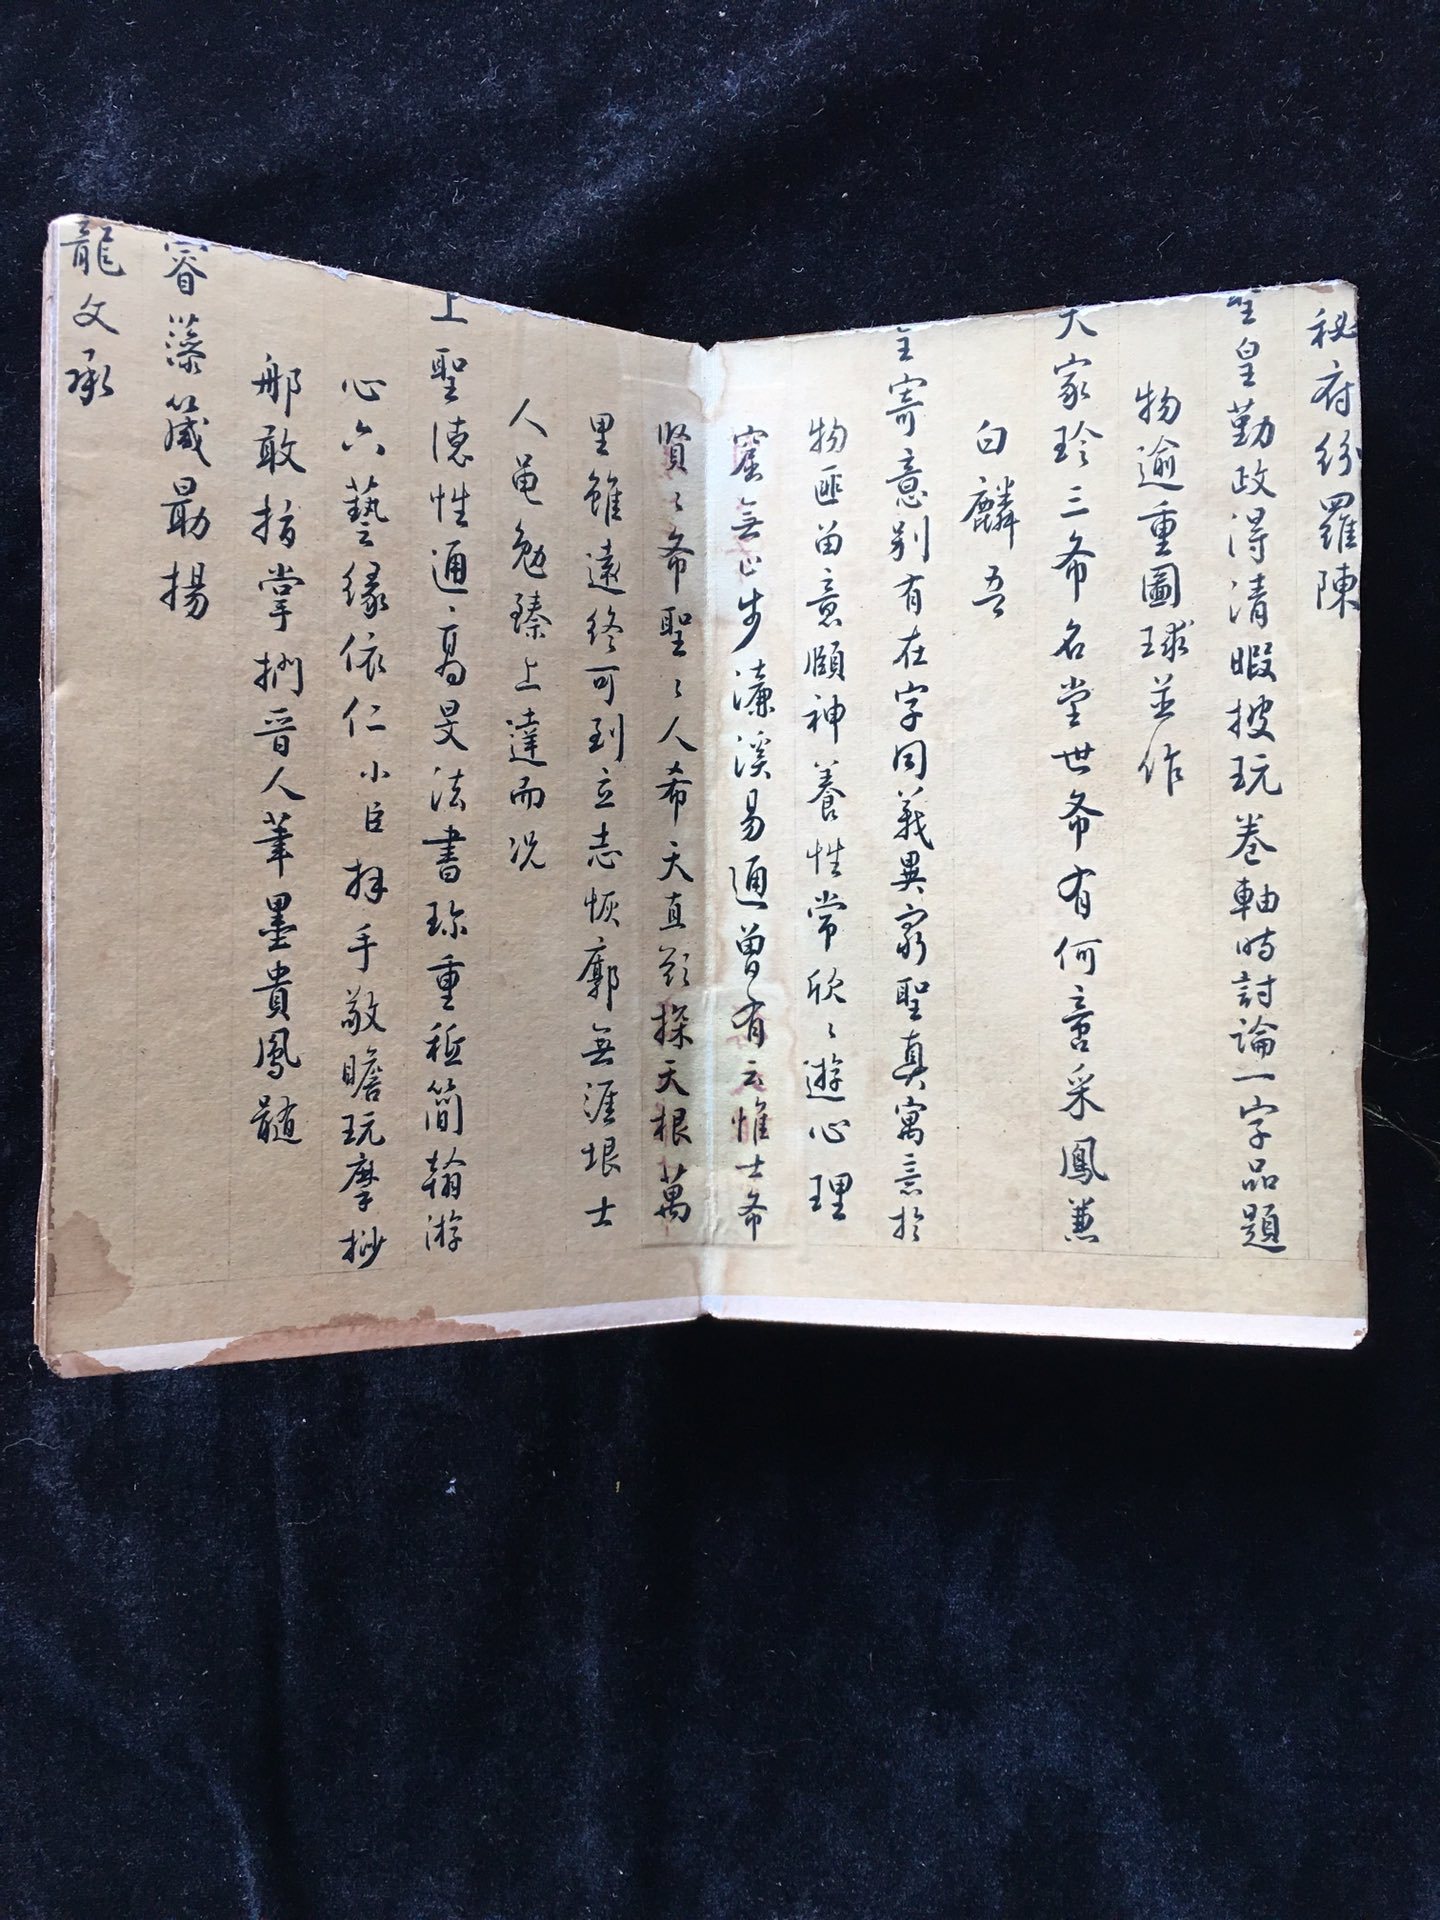 秘府紛羅陳
聖皇勤政得清暇披玩卷軸時討論一字品題
物逾重圖球並作
天家珍三希名堂世希有何啻采鳳兼
白麟吾
主寄意別有在字同義異家聖真寓言於
物匪留意頤神養性常欣〻遊心理
窟無止步濂溪易通曾有云惟士希
賢〻希聖〻人希天直欲探天根萬
里雖遠終可到立志恢廓無涯垠士
人黽勉臻上達而况
上聖德性通高旻法書珍重祗簡翰游
心六藝緣依仁小臣拜手敬瞻玩摩挱
那敢指掌捫晉人筆墨貴鳳髓
睿藻箴最揚
龍文承